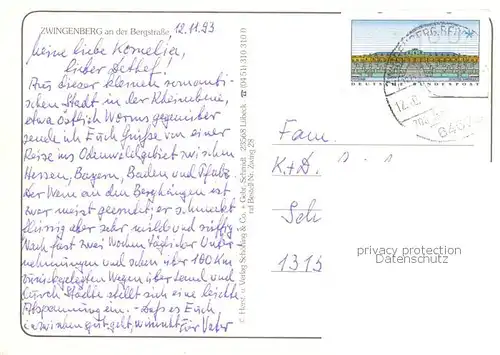 ZWINGENBERG an der Bergstraße
12.11.93
meine liebe Kornelia,
lieber Dethof!
Aus dieser kleinen romanti-
schen Stadt in der Rheinebene,
etwa östlich Worms gegenüber
sende ich Euch Grüße von einer
Reise ins Odenwaldgebiet zwischen
Hessen, Bayern, Baden und Pfalz.
Der Wein an den Berghängen ist
zwar meist geerntet, er schmeckt
flüssig aber sehr mild und süffig
Nach fast zwei Wochen täglicher Unter-
nehmungen und schon über 180 Km
zurückgelegten Wegen über Land und
durch Städte stellt sich eine leichte
Abspannung ein. - Daß es Euch
inzwischen gut geht, wünscht für Vater
© Horst. u. Verlag Schöning & Co. + Gebr. Schmidt · 23568 Lübeck ☎ (0451) 310 310
Bestell-Nr. Zwing 28
DEUTSCHE BUNDESPOST
12.
646
Fam.
K+D.
Sch
1315
privacy protection
Datenschutz